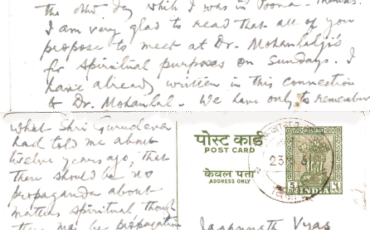 the other day while I was in Poona – Thomas.
I am very glad to read that all of you
propose to meet at Dr. Mohanlalji's
for spiritual purposes on Sundays. I
have already written in this connection
to Dr. Mohanlal. We have only to remember
what Shri Gurudeva
had told me about
twelve years ago, that
there should be no
propaganda about
matters spiritual, though
there may be propagation
पोस्ट कार्ड
POST CARD
केवल पता
ADDRESS ONLY
INDIA
Jagannath Vyas